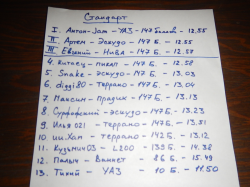 Стандарт
I. Антон-Jam - УАЗ - 147 баллов - 12.55
II. Артем - Эскудо - 147 Б. - 12.55
III Евгений - Нива - 147 Б. - 12.57
4. Китаец - пикап - 147 Б. - 12.58
5. Snake - эскудо - 147 Б. - 13.03
6. diggi80 - террано - 147 Б. - 13.04
7. Максим - прадик - 147 Б. - 13.13
8. - эскудо - 147 Б. - 13.23
9. Илья 021 - террано - 147 Б. - 13.51
10. ши.Хан - террано - 142 Б. - 13.12
11. Кузьмич03 - L200 - 139 Б. - 14.38
12. Палыч - - 86 Б - 15.49
13. Тихий - УАЗ - 10 Б. - 11.50